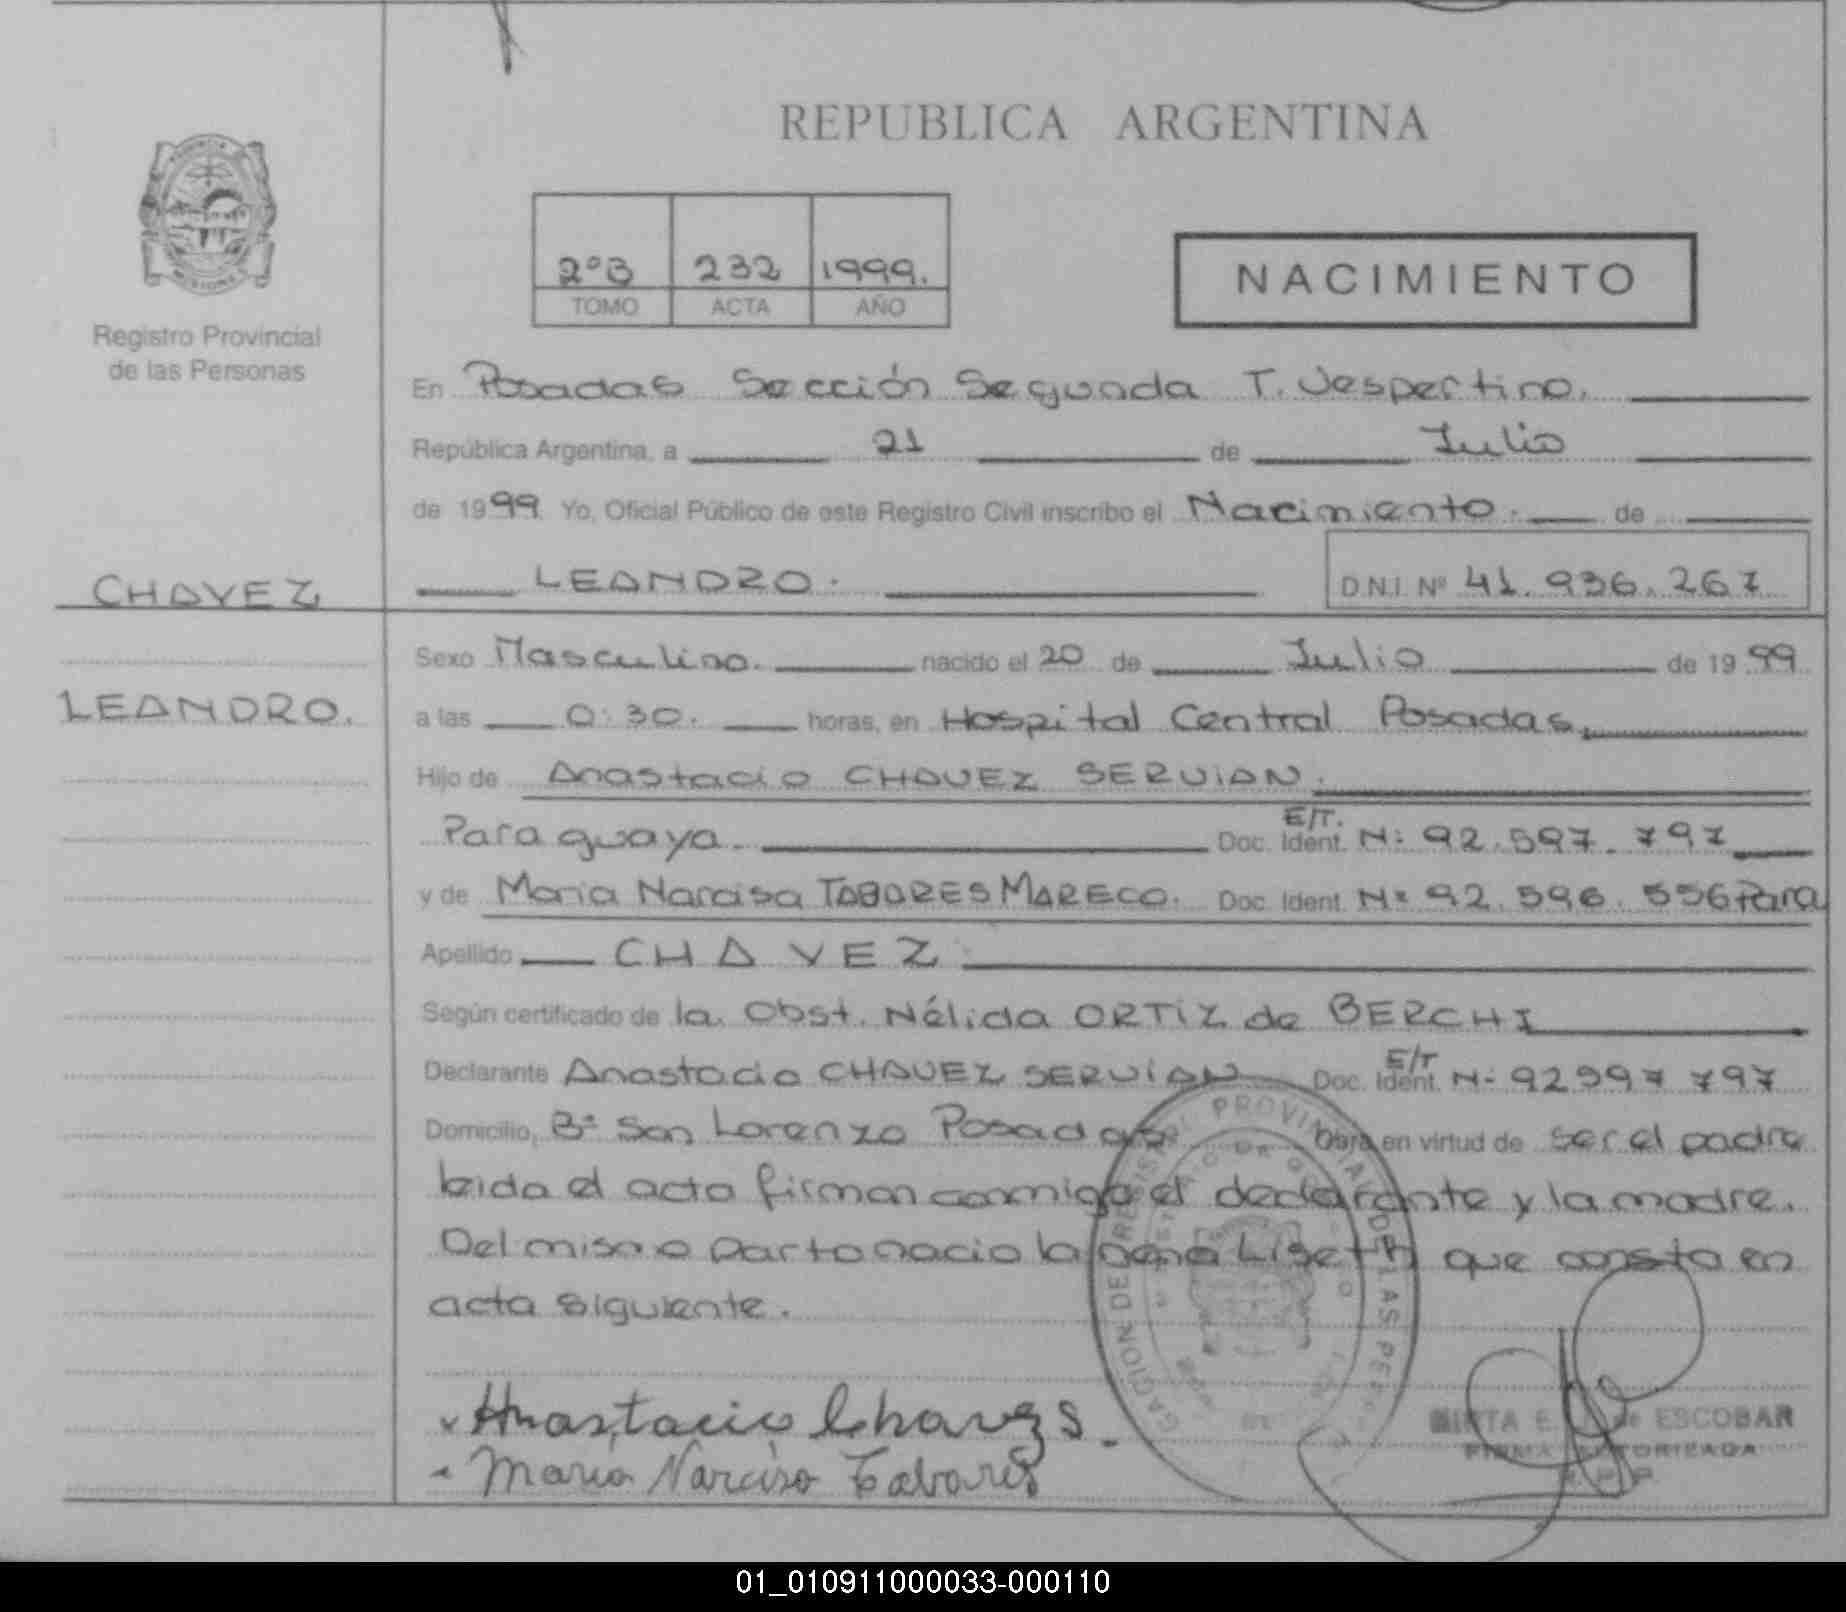 REPUBLICA ARGENTINA
2º B 232 1999.
TOMO ACTA AÑO
NACIMIENTO
Registro Provincial
de las Personas
En Posadas Sección Segunda T. Vespertino.
República Argentina, a 21 de Julio
de 1999. Yo, Oficial Público de este Registro Civil inscribo el Nacimiento. de
CHAVEZ
LEANDRO. D.N.I. Nº 41.936.267
LEANDRO.
Sexo Masculino. nacido el 20 de Julio de 1999
a las 0:30. horas, en Hospital Central Posadas.
Hijo de Anastacio CHAVEZ SERVIAN.
Paraguaya. Doc. Ident. E/T. Nº 92.597.797
y de Maria Narcisa TABARES MARECO. Doc. Ident. Nº 92.596.556 Para
Apellido CHAVEZ
Según certificado de la Obst. Nélida ORTIZ de BERCHI
Declarante Anastacio CHAVEZ SERVIAN Doc. Ident. E/T Nº 92597797
Domicilio, Bº San Lorenzo Posadas Obra en virtud de ser el padre
leida el acta firman conmigo el declarante y la madre.
Del mismo parto nacio la nena Liseth que consta en
acta siguiente.
Anastacio Chavez S.
Maria Narcisa Tabares
ESCOBAR
FIRMA AUTORIZADA
01_010911000033-000110